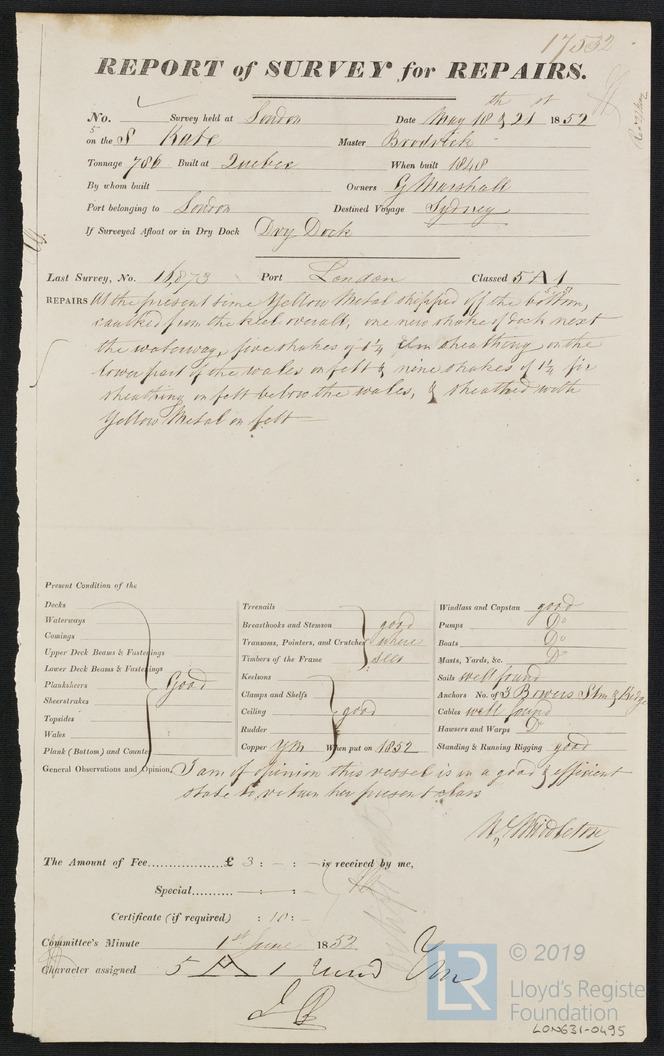 17532
REPORT of SURVEY for REPAIRS.
No. Survey held at London Date May 18th & 21st 1852
on the S Kate Master Brodrick
Tonnage 786 Built at Quebec When built 1848
By whom built Owners G Marshall
Port belonging to London Destined Voyage Sydney
If Surveyed Afloat or in Dry Dock Dry Dock
Last Survey, No. 14,873 Port London Classed 5 A 1
REPAIRS At the present time Yellow Metal stripped off the bottom,
caulked from the keel overall, one new strake of deck next
the waterway, five strakes of 1¼ Elm sheathing on the
lower part of the wales on felt & nine strakes of 1¼ fir
sheathing on felt below the wales, & sheathed with
Yellow Metal on felt
Present Condition of the
Decks
Waterways
Comings
Upper Deck Beams & Fastenings
Lower Deck Beams & Fastenings
Planksheers Good
Sheerstrakes
Topsides
Wales
Plank (Bottom) and Counter
Treenails
Breasthooks and Stemson good
Transoms, Pointers, and Crutches where
Timbers of the Frame seen
Keelsons
Clamps and Shelfs
Ceiling good
Rudder
Copper YM When put on 1852
Windlass and Capstan good
Pumps Do
Boats Do
Masts, Yards, &c. Do
Sails well found
Anchors No. of 3 Bowers Stm & Kedge
Cables well found
Hawsers and Warps Do
Standing & Running Rigging good
General Observations and Opinion, I am of opinion this vessel is in a good & efficient
state to retain her present class
Wm Middleton
The Amount of Fee................£ 3 : - : - is received by me,
Special.......... - : - : -
Certificate (if required) : 10 : -
Committee's Minute 1st June 1852
Character assigned 5 A 1
LR © 2019
Lloyd's Register
Foundation
LON631-0495